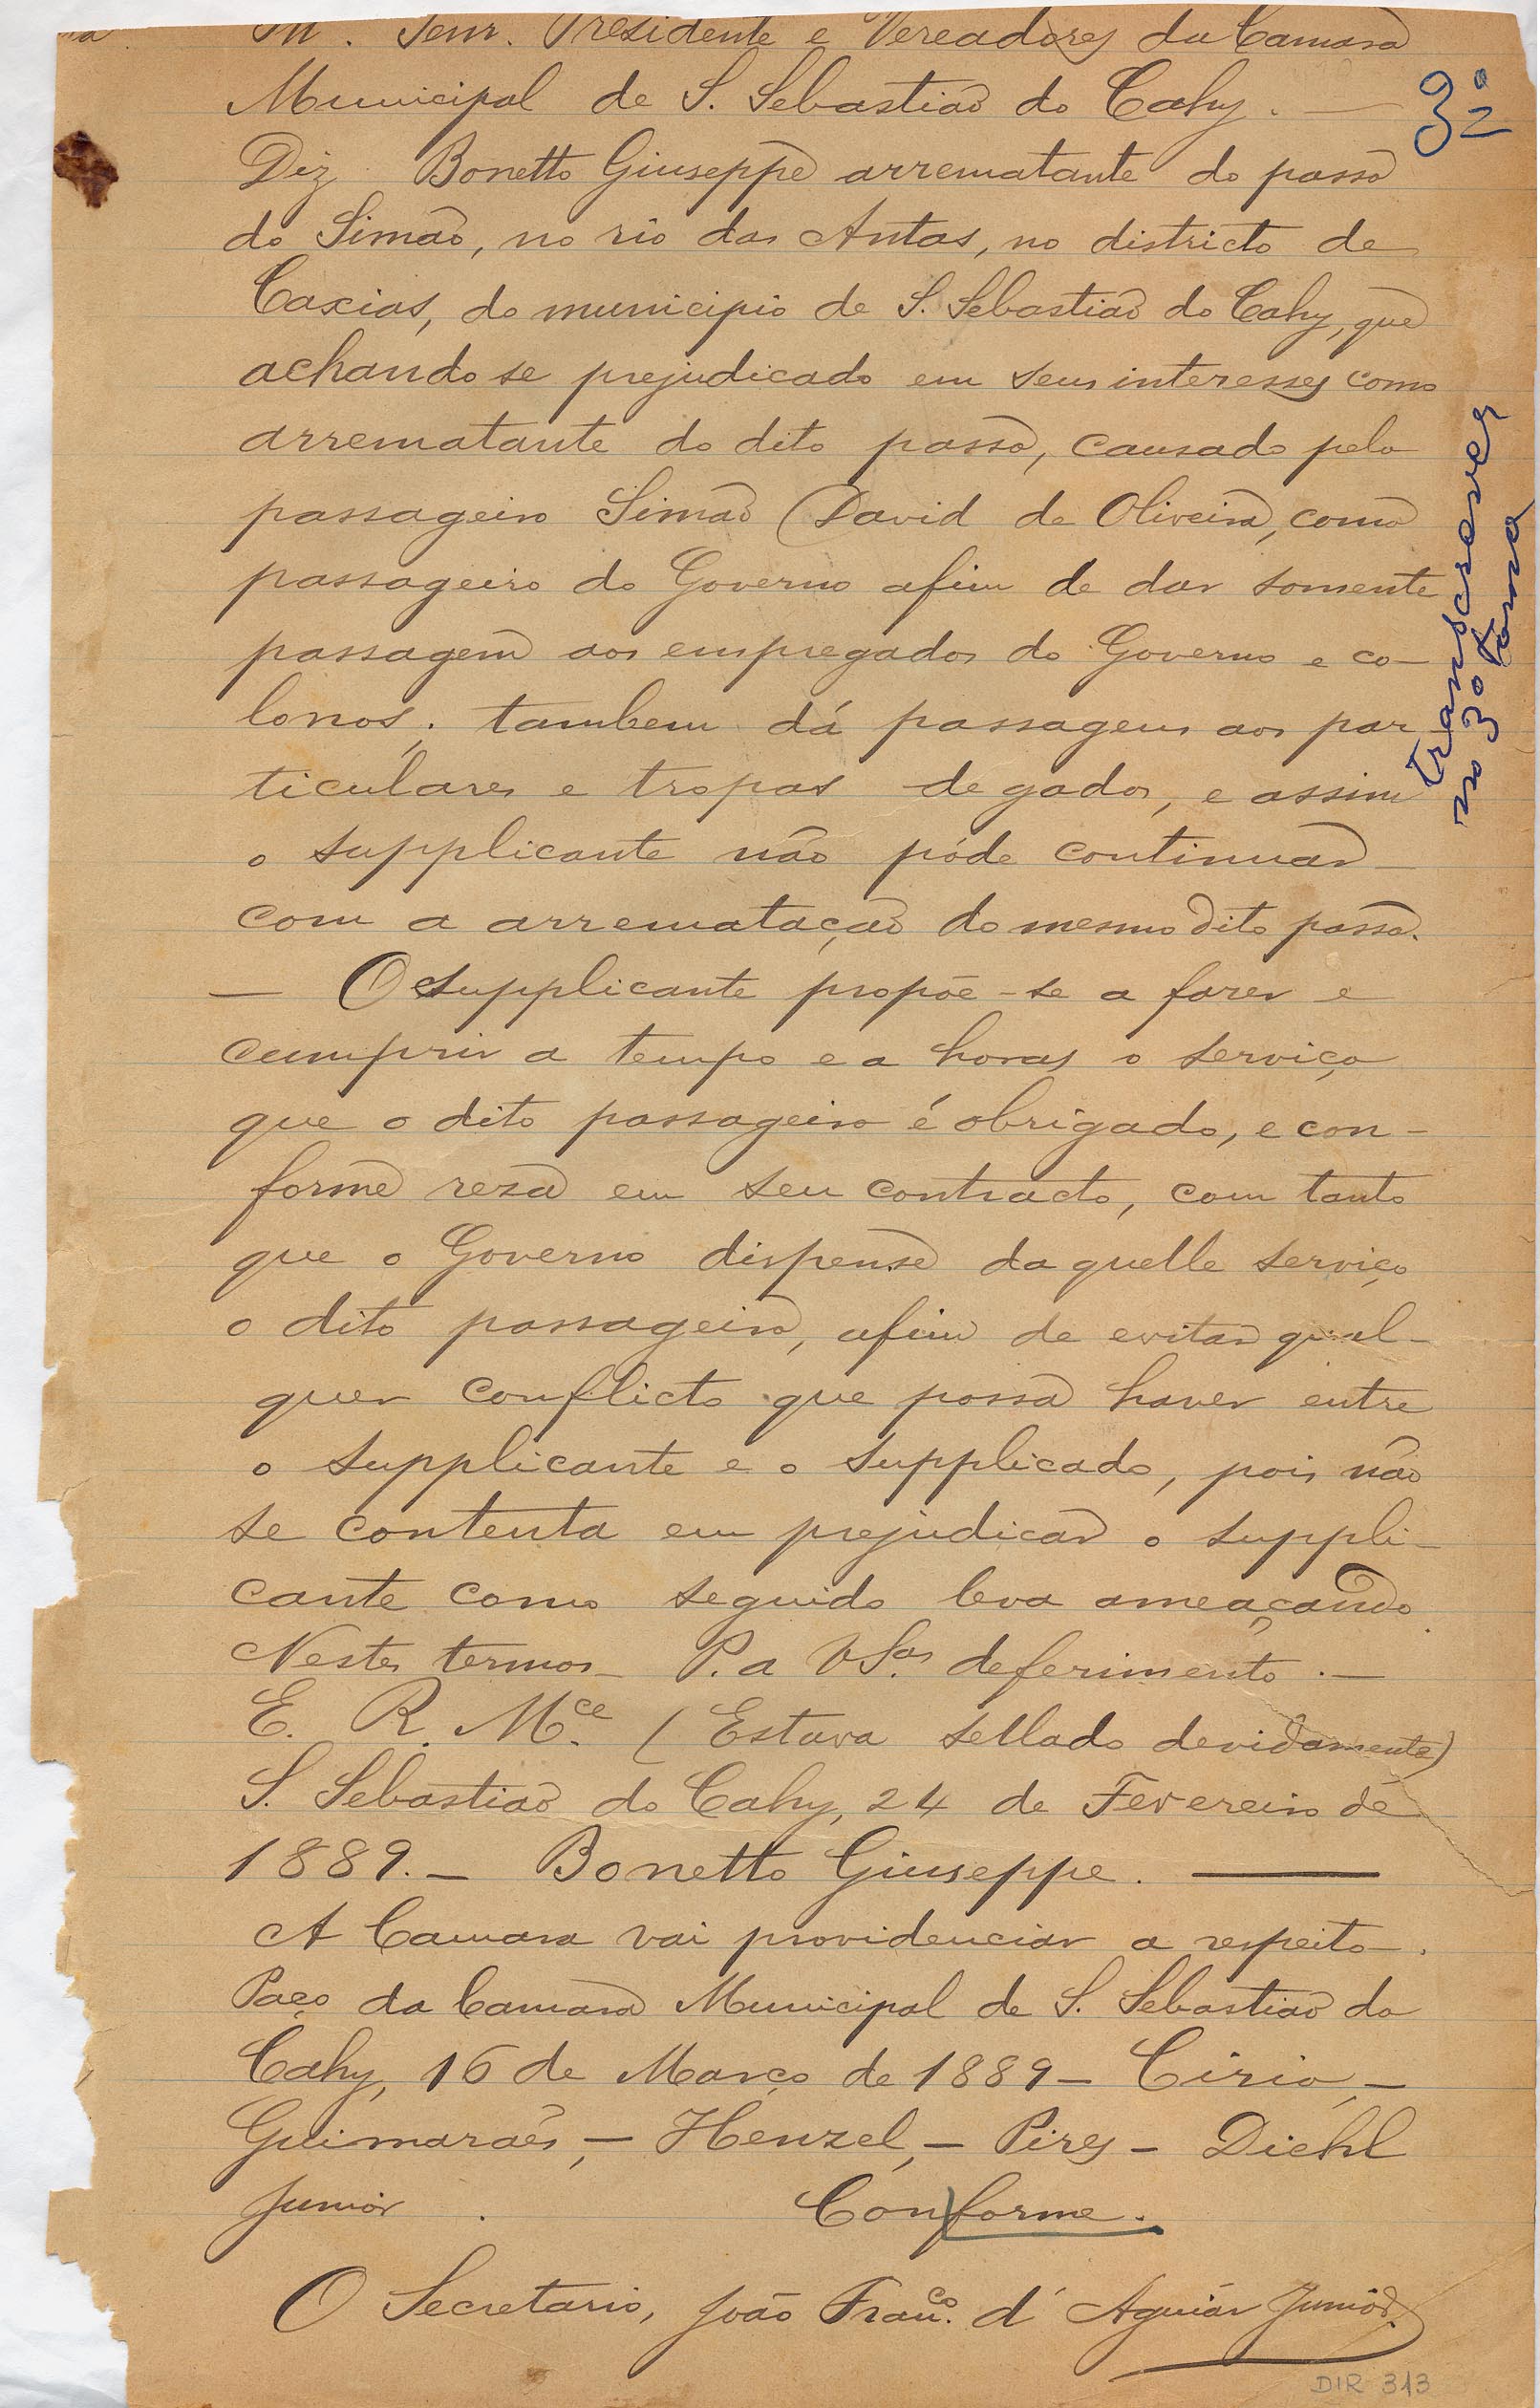 Snr. Presidente e Vereadores da Camara
Municipal de S. Sebastião do Cahy. —
Diz Bonetto Giuseppe arrematante do passo
do Simão, no rio das Antas, no districto de
Caxias, do municipio de S. Sebastião do Cahy, que
achando se prejudicado em seus interesses como
arrematante do dito passo, causado pelo
passageiro Simão David de Oliveira, como
passageiro do Governo afim de dar somente
passagem aos empregados do Governo e co-
lonos; tambem dá passagem aos par-
ticulares e tropas de gados, e assim
o supplicante não póde continuar
com a arrematação do mesmo dito passo.
— O supplicante propõe-se a fazer e
cumprir a tempo e a horas o serviço
que o dito passageiro é obrigado, e con-
forme reza em seu contracto, com tanto
que o Governo dispense daquelle serviço
o dito passageiro, afim de evitar qual-
quer conflicto que possa haver entre
o supplicante e o supplicado, pois não
se contenta em prejudicar o suppli-
cante como seguido leva ameaçando.
Nestes termos — P. a VSas. deferimento. —
E. R. Mce. (Estava sellado devidamente)
S. Sebastião do Cahy, 24 de Fevereiro de
1889. — Bonetto Giuseppe. —
A Camara vai providenciar a respeito.
Paço da Camara Municipal de S. Sebastião do
Cahy, 16 de Março de 1889 — Cirio, —
Guimarães, — Henzel, — Pires — Diehl
Junior. Conforme.
O Secretario, João Franco. d'Aguiar Junior.
3º
transcrever
no 3º tomo
DIR 313